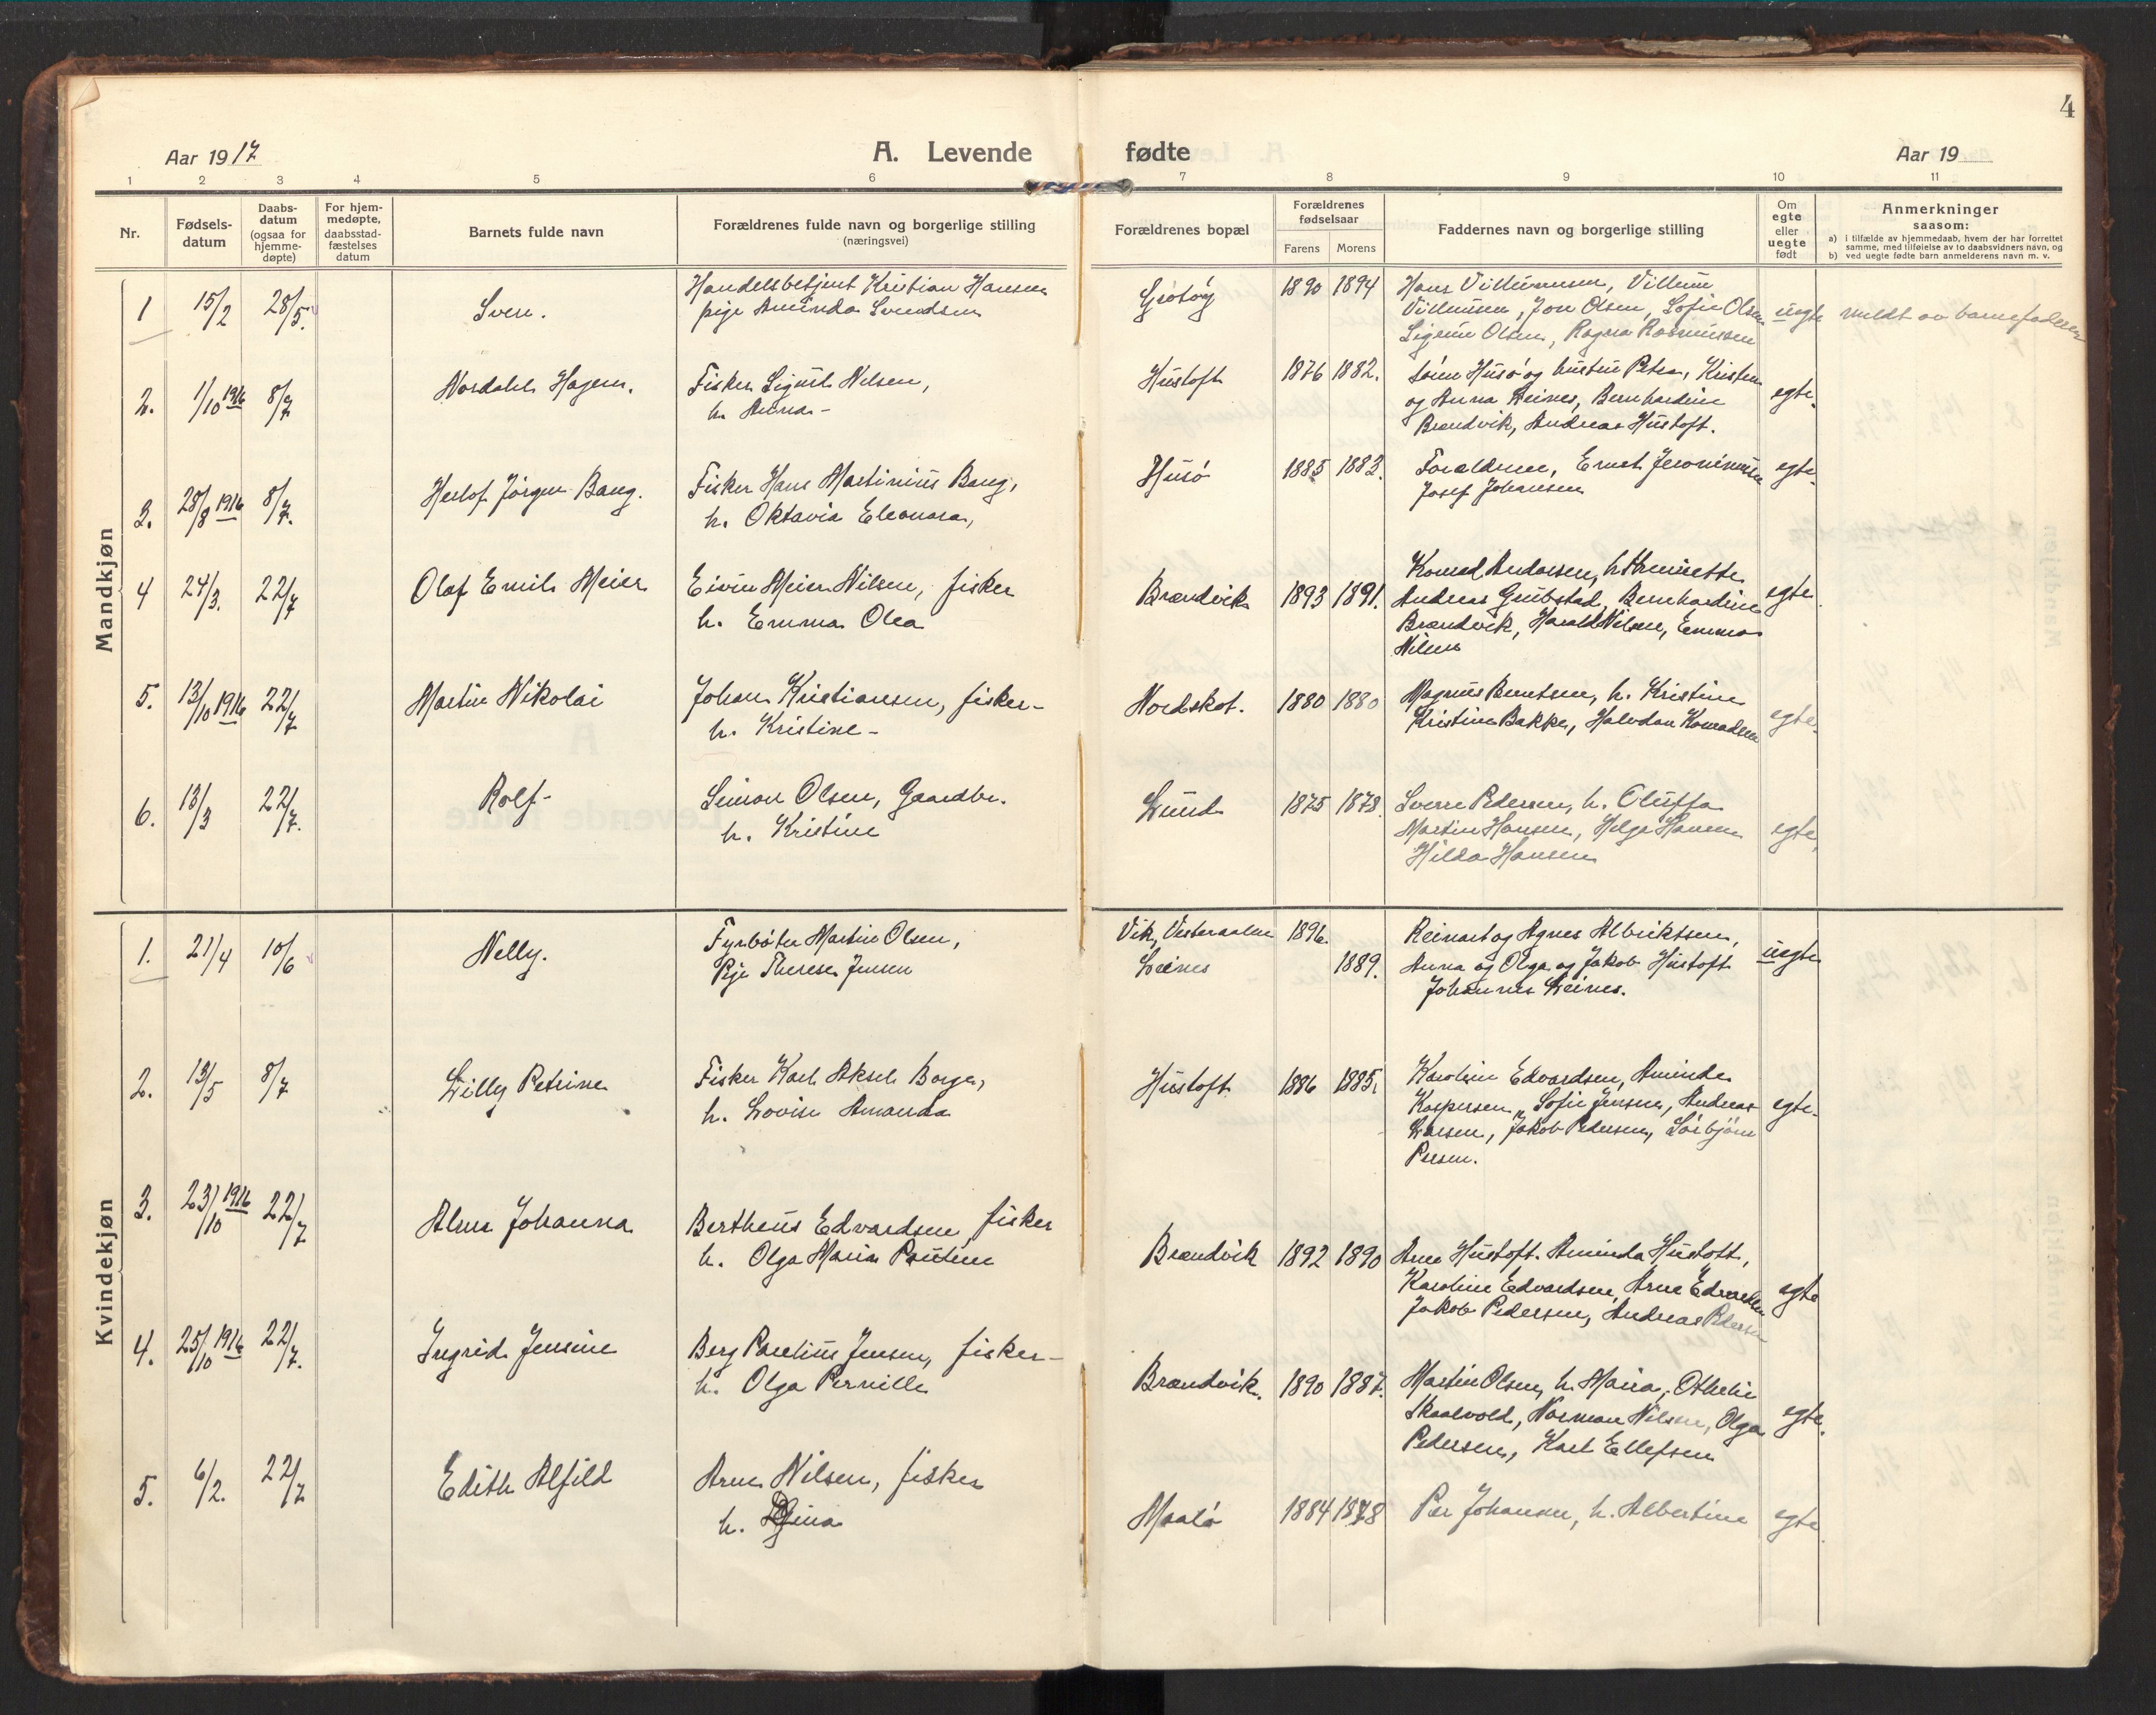 4
Aar 1917
A. Levende fødte
Aar 19
1 2 3 4 5 6 7 8 9 10 11
Nr.
Fødsels-
datum
Daabs-
datum
(ogsaa for
hjemme-
døpte)
For hjem-
medøpte,
daabsstad-
fæstelses
datum
Barnets fulde navn
Forældrenes fulde navn og borgerlige stilling
(næringsvei)
Forældrenes bopæl
Forældrenes
fødselsaar
Farens Morens
Faddernes navn og borgerlige stilling
Om
egte
eller
uegte
født
Anmerkninger
saasom:
a) i tilfælde av hjemmedaab, hvem der har forrettet
samme, med tilføielse av to daabsvidners navn, og
b) ved uegte fødte barn anmelderens navn m. v.
Mandkjøn
1 15/2 28/5. Sven.
Handelsbetjent Kristian Hansen
pige Aminda Svendsen
Grøtøy 1890 1894
Hans Villumsen, Villum
Villumsen, Jon Olsen, Sofie Olsen
Sigrun Olsen, Ragna Rasmussen
uegte meldt av barnefaderen
2. 1/10 1916 8/7 Nordahl Hagem.
Fisker Sigurd Nilsen,
h. Anna-
Hustoft 1876 1882.
Husø og hustru Petra, Kristen
og Anna Leines, Bernhardine
Brændvik, Andreas Hustoft.
egte.
3. 28/8 1916 8/7. Herlof Jørgen Bang.
Fisker Hans Martinius Bang,
h. Oktavia Eleonora,
Husø 1885 1883.
Forældrene, Ernst Jeronimusen
Josef Johansen
egte.
4 24/3. 22/7 Olaf Emil Meier
Eivin Meier Nilsen, fisker
h. Emma Olea
Brændvik 1893 1891.
Konrad Andorsen, h. Henriette
Andreas Gribstad, Bernhardine
Brændvik, Harald Nilsen, Emma
Nilsen
egte.
5. 13/10 1916 22/7 Martin Nikolai
Johan Kristiansen, fisker-
h. Kristine-
Nordskot. 1880 1880
Magnus Berntsen, h. Kristine
Kristine Bakken, Halvdan Konradsen
egte.
6. 13/3 22/7. Rolf-
Simon Olsen, Gaardbr.
h. Kristine
Lund 1875 1878.
Sverre Pedersen, h. Oluffa
Martin Hansen, Helga Hansen
Hilda Hansen
egte,
Kvindekjøn
1. 21/4 10/6 Nelly.
Fyrbøter Martin Olsen,
Pije Therese Jensen
Vik, Vesteraalen 1896.
Leines 1889.
Reinart og Agnes Albriktsen,
Anna og Olga og Jakob Hustoft
Johannes Leines.
uegte
2. 13/5 8/7 Lilly Petrine
Fisker Karl Aksel Borge,
h. Lovise Amanda
Hustoft 1886 1885.
Karoline Edvardsen, Aminda
Kaspersen, Sofie Jensen, Andreas
Larsen, Jakob Pedersen, Sørbjørn
egte.
3. 23/10 1916 22/7 Alma Johanna
Bertheus Edvardsen, fisker
h. Olga Maria
Brændvik 1892 1890
Arne Hustoft. Aminda Hustoft,
Karoline Edvardsen, Arne Edvardsen
Jakob Pedersen, Andreas Pedersen
egte
4. 25/10 1916 22/7. Ingrid Jensine
Berg Paulius Jensen, fisker-
h. Olga Pernille
Brændvik. 1890 1887.
Martin Olsen, h. Maria, Othelie
Skaalvold, Norman Nilsen, Olga
Pedersen, Karl Ellefsen
egte.
5. 6/2. 22/7 Edith Alfild
Arne Nilsen, fisker
h.
Maalø 1884 1878
Per Johansen, h. Albertine
egte.